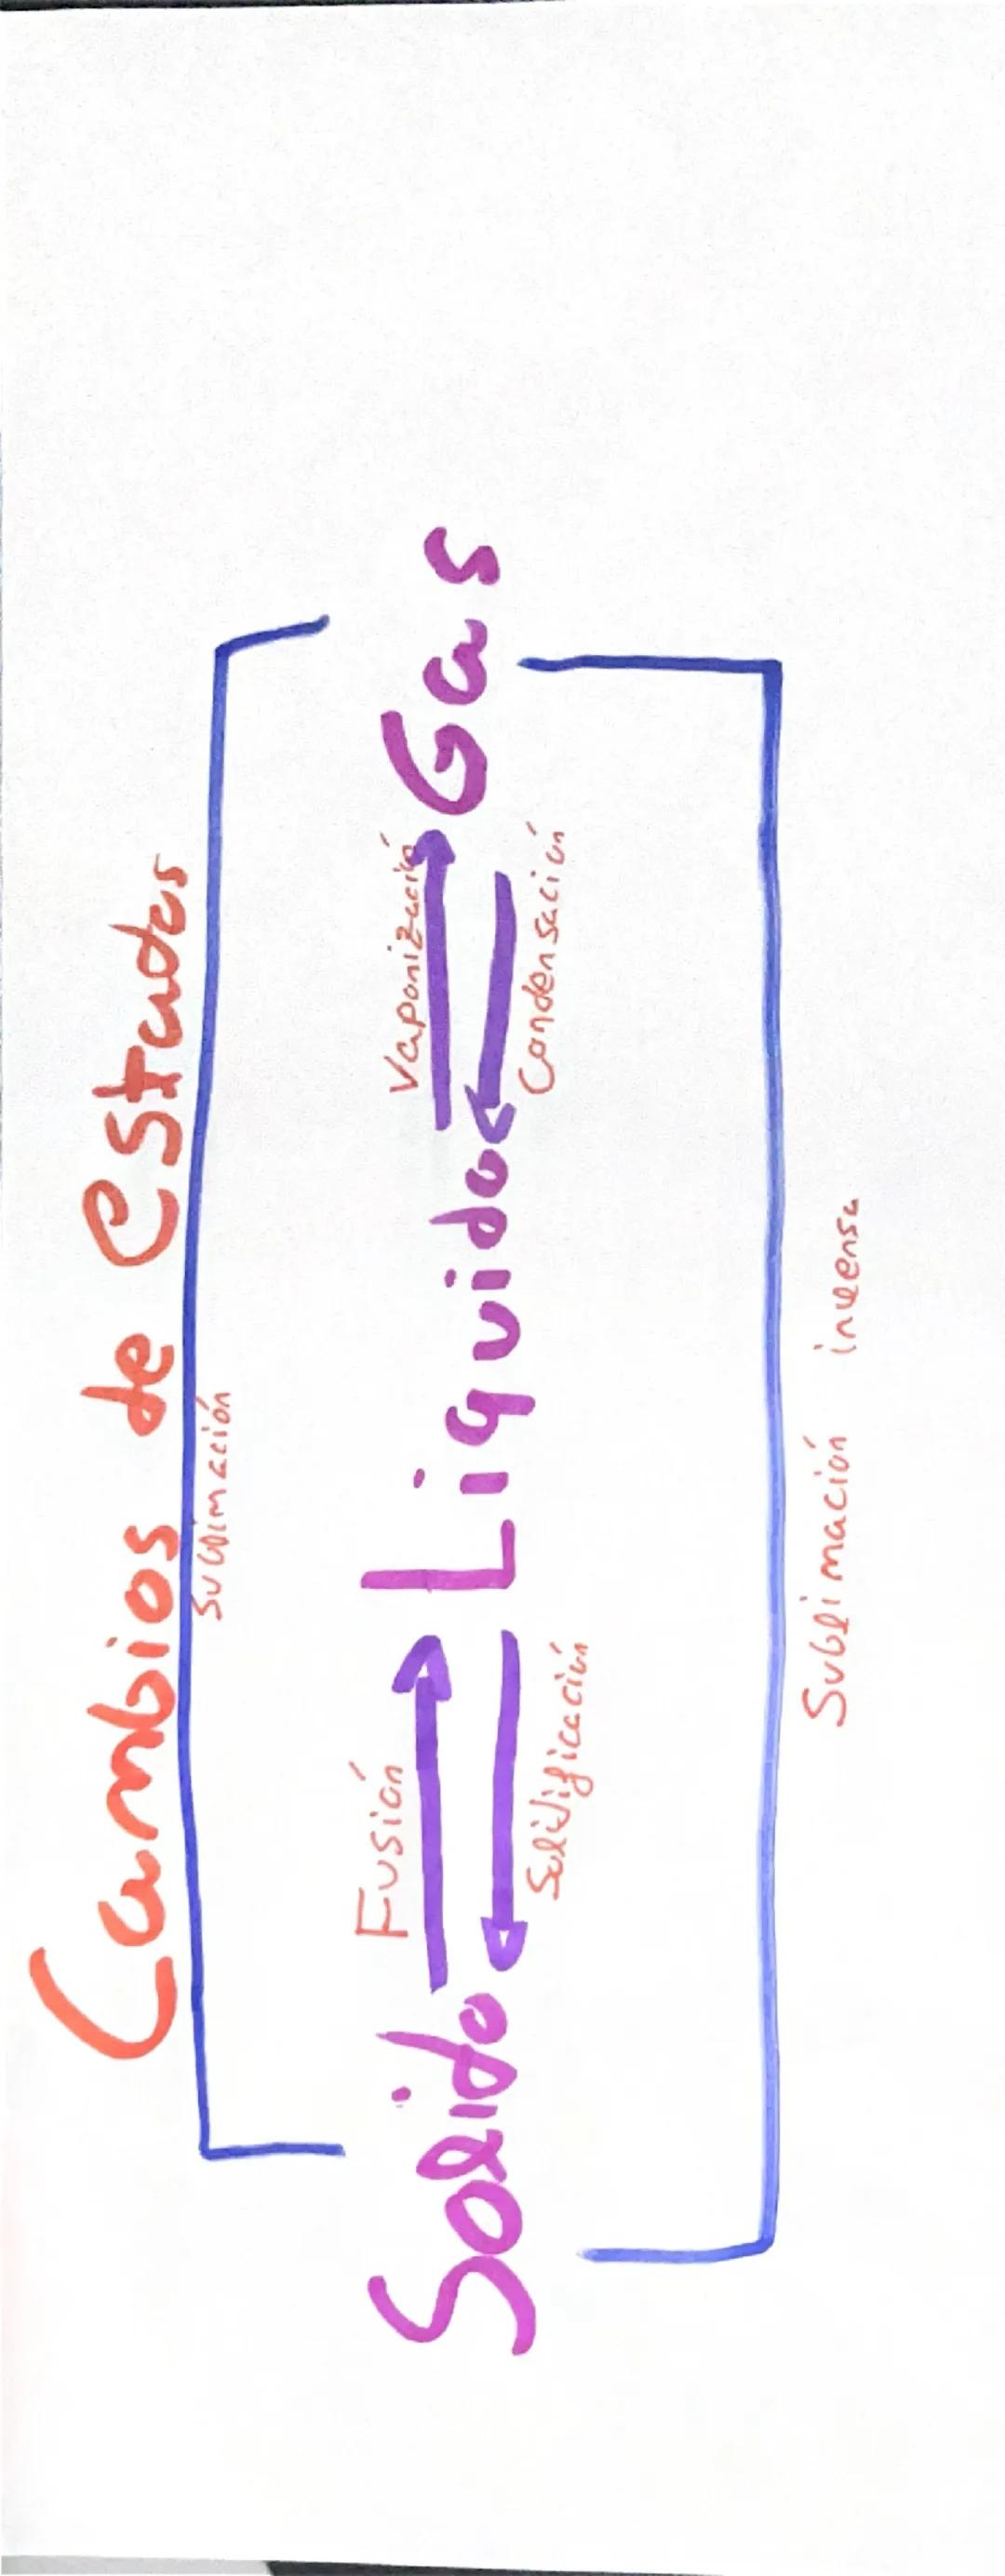 Cambios de Estados
Sublimación
Fusión
Vaporización
Solido Liquido Gas
Solidificación
Condensación
Sublimación inversa